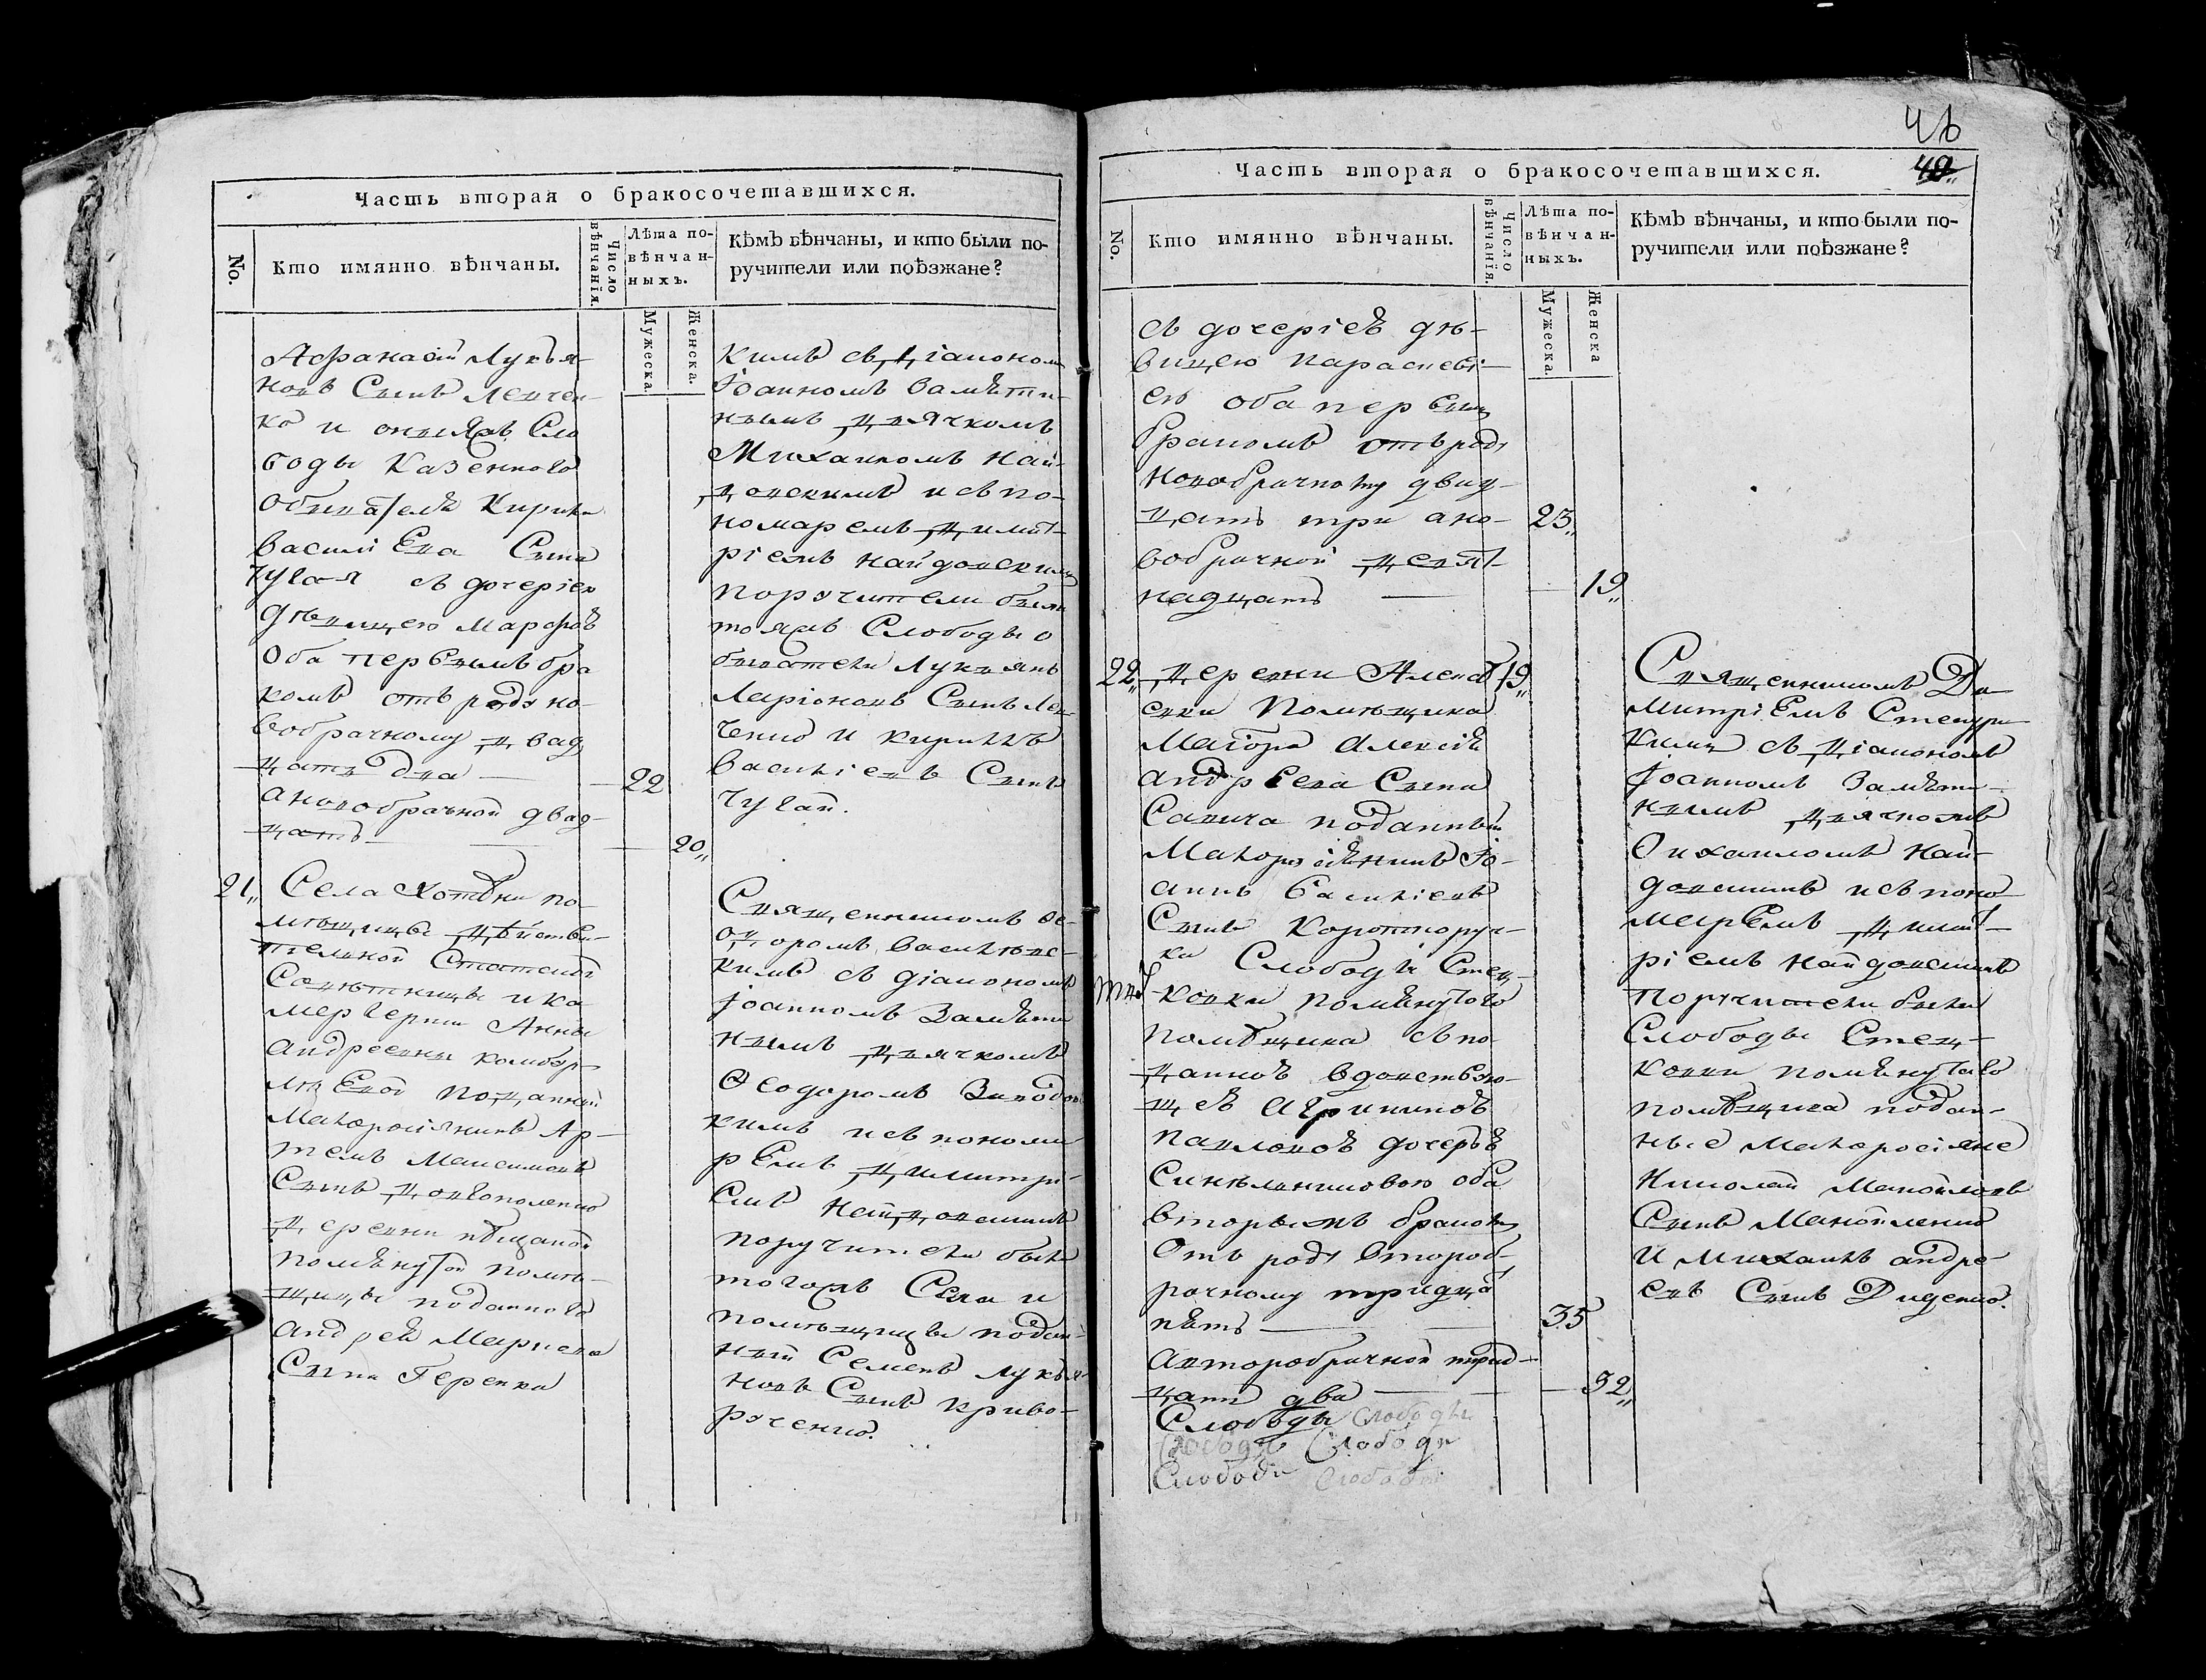 Часть вторая о бракосочетавшихся.
No.
Кто имянно вѣнчаны.
Число вѣнчанія.
Лѣта по-
вѣнчан-
ныхъ.
Мужеска.
Женска.
Кѣмъ вѣнчаны, и кто были по-
ручители или поѣзжане?
Афанасій Лукья-
новъ Сынъ Левчен-
ко и оныяжъ Сло
боды Казенного
Обывателя Кирила
Василіева Сына
Чугая съ дочеріею
дѣвицею Марфою
Оба первымъ бра
комъ отъ роду но-
вобрачному двад
цать два
22
а новобрачной двад-
цать
20„
кимъ съ діаконом
Іоанномъ Замѣти-
нымъ дьячкомъ
Михаиломъ Най-
довскимъ и съ по-
номаремъ Димит-
ріемъ Найдовским
поручители были
тояжъ Слободы о
быватели Лукьянъ
Ларіоновъ Сынъ Лев-
ченко и Кириллъ
Василіевъ Сынъ
Чугай.
21„
Села Хотѣни по-
мѣщицы Дѣйстви-
тельной Статской
Совѣтницы и ка
мергерши Анны
Андреевны Камбур-
лѣевой подданный
Малоросіянинъ Ар-
темъ Максимовъ
Сынъ Довгополенко
Деревни пѣщаной
помянутой помѣ-
щицы подданного
Андрея Маркева
Сына Геренка
Священникомъ Ѳе-
одоромъ Василевс-
кимъ съ діакономъ
Іоанномъ Замѣти
нымъ дьячкомъ
Ѳеодоромъ
кимъ и съ понома
ремъ Димитрі-
емъ Найдовскимъ
поручители были
тогожъ Села и
помѣщицы поддан-
ный Семенъ Лукья-
новъ Сынъ Криво-
рученко.
46
40„
Часть вторая о бракосочетавшихся.
No.
Кто имянно вѣнчаны.
Число вѣнчанія.
Лѣта по-
вѣнчан-
ныхъ.
Мужеска.
Женска
Кѣмъ вѣнчаны, и кто были по-
ручители или поѣзжане?
съ дочеріею дѣ-
вицею Параскеві-
ею оба первым
бракомъ отъ роду
новобрачному двад-
цать три а но-
23„
вобрачной девят-
надцать
19„
22„
Деревни Алекс
19„
еевки Помѣщика
Маіора Алексія
Андреева Сына
Савича подданный
Малоросіянинъ Іо-
аннъ Василіевъ
Сынъ Коротпоруч-
ки Слободы Стец-
ковки помянутого
помѣщика съ по-
дданною вдовствую-
щею Агрипиною
Павловою дочерью
оба
вторымъ браком
Отъ роду второб-
рачному тридца
пять
35
а второбрачной трид-
цать два
32„
Слободы Слободы
Слободы Слободы
Слободы Слободы
Священникомъ Ди-
митріемъ
кимъ съ діакономъ
Іоанномъ Замѣти-
нымъ дьячкомъ
Михаиломъ Най-
довскимъ и съ поно-
маремъ Димит-
ріемъ Найдовскимъ
Поручители были
Слободы Стец-
ковки помянутого
помѣщика поддан-
ные малоросіяне
Николай Манойловъ
Сынъ Манойленко
и Михаилъ Андре-
евъ Сынъ Диденко.